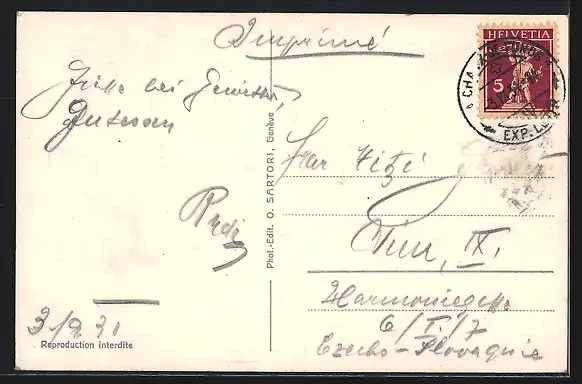 Imprimé
HELVETIA
5
CHA
EXP. LETTR
Grüsse bei Gewitter,
Gutessen
Rudi
3/9 31
Reproduction interdite
Phot.-Edit. O. SARTORI, Genève
Herr Fitzi
Wien, IX.
Harmoniegasse
6/I./7
Czecho-Slovaquie